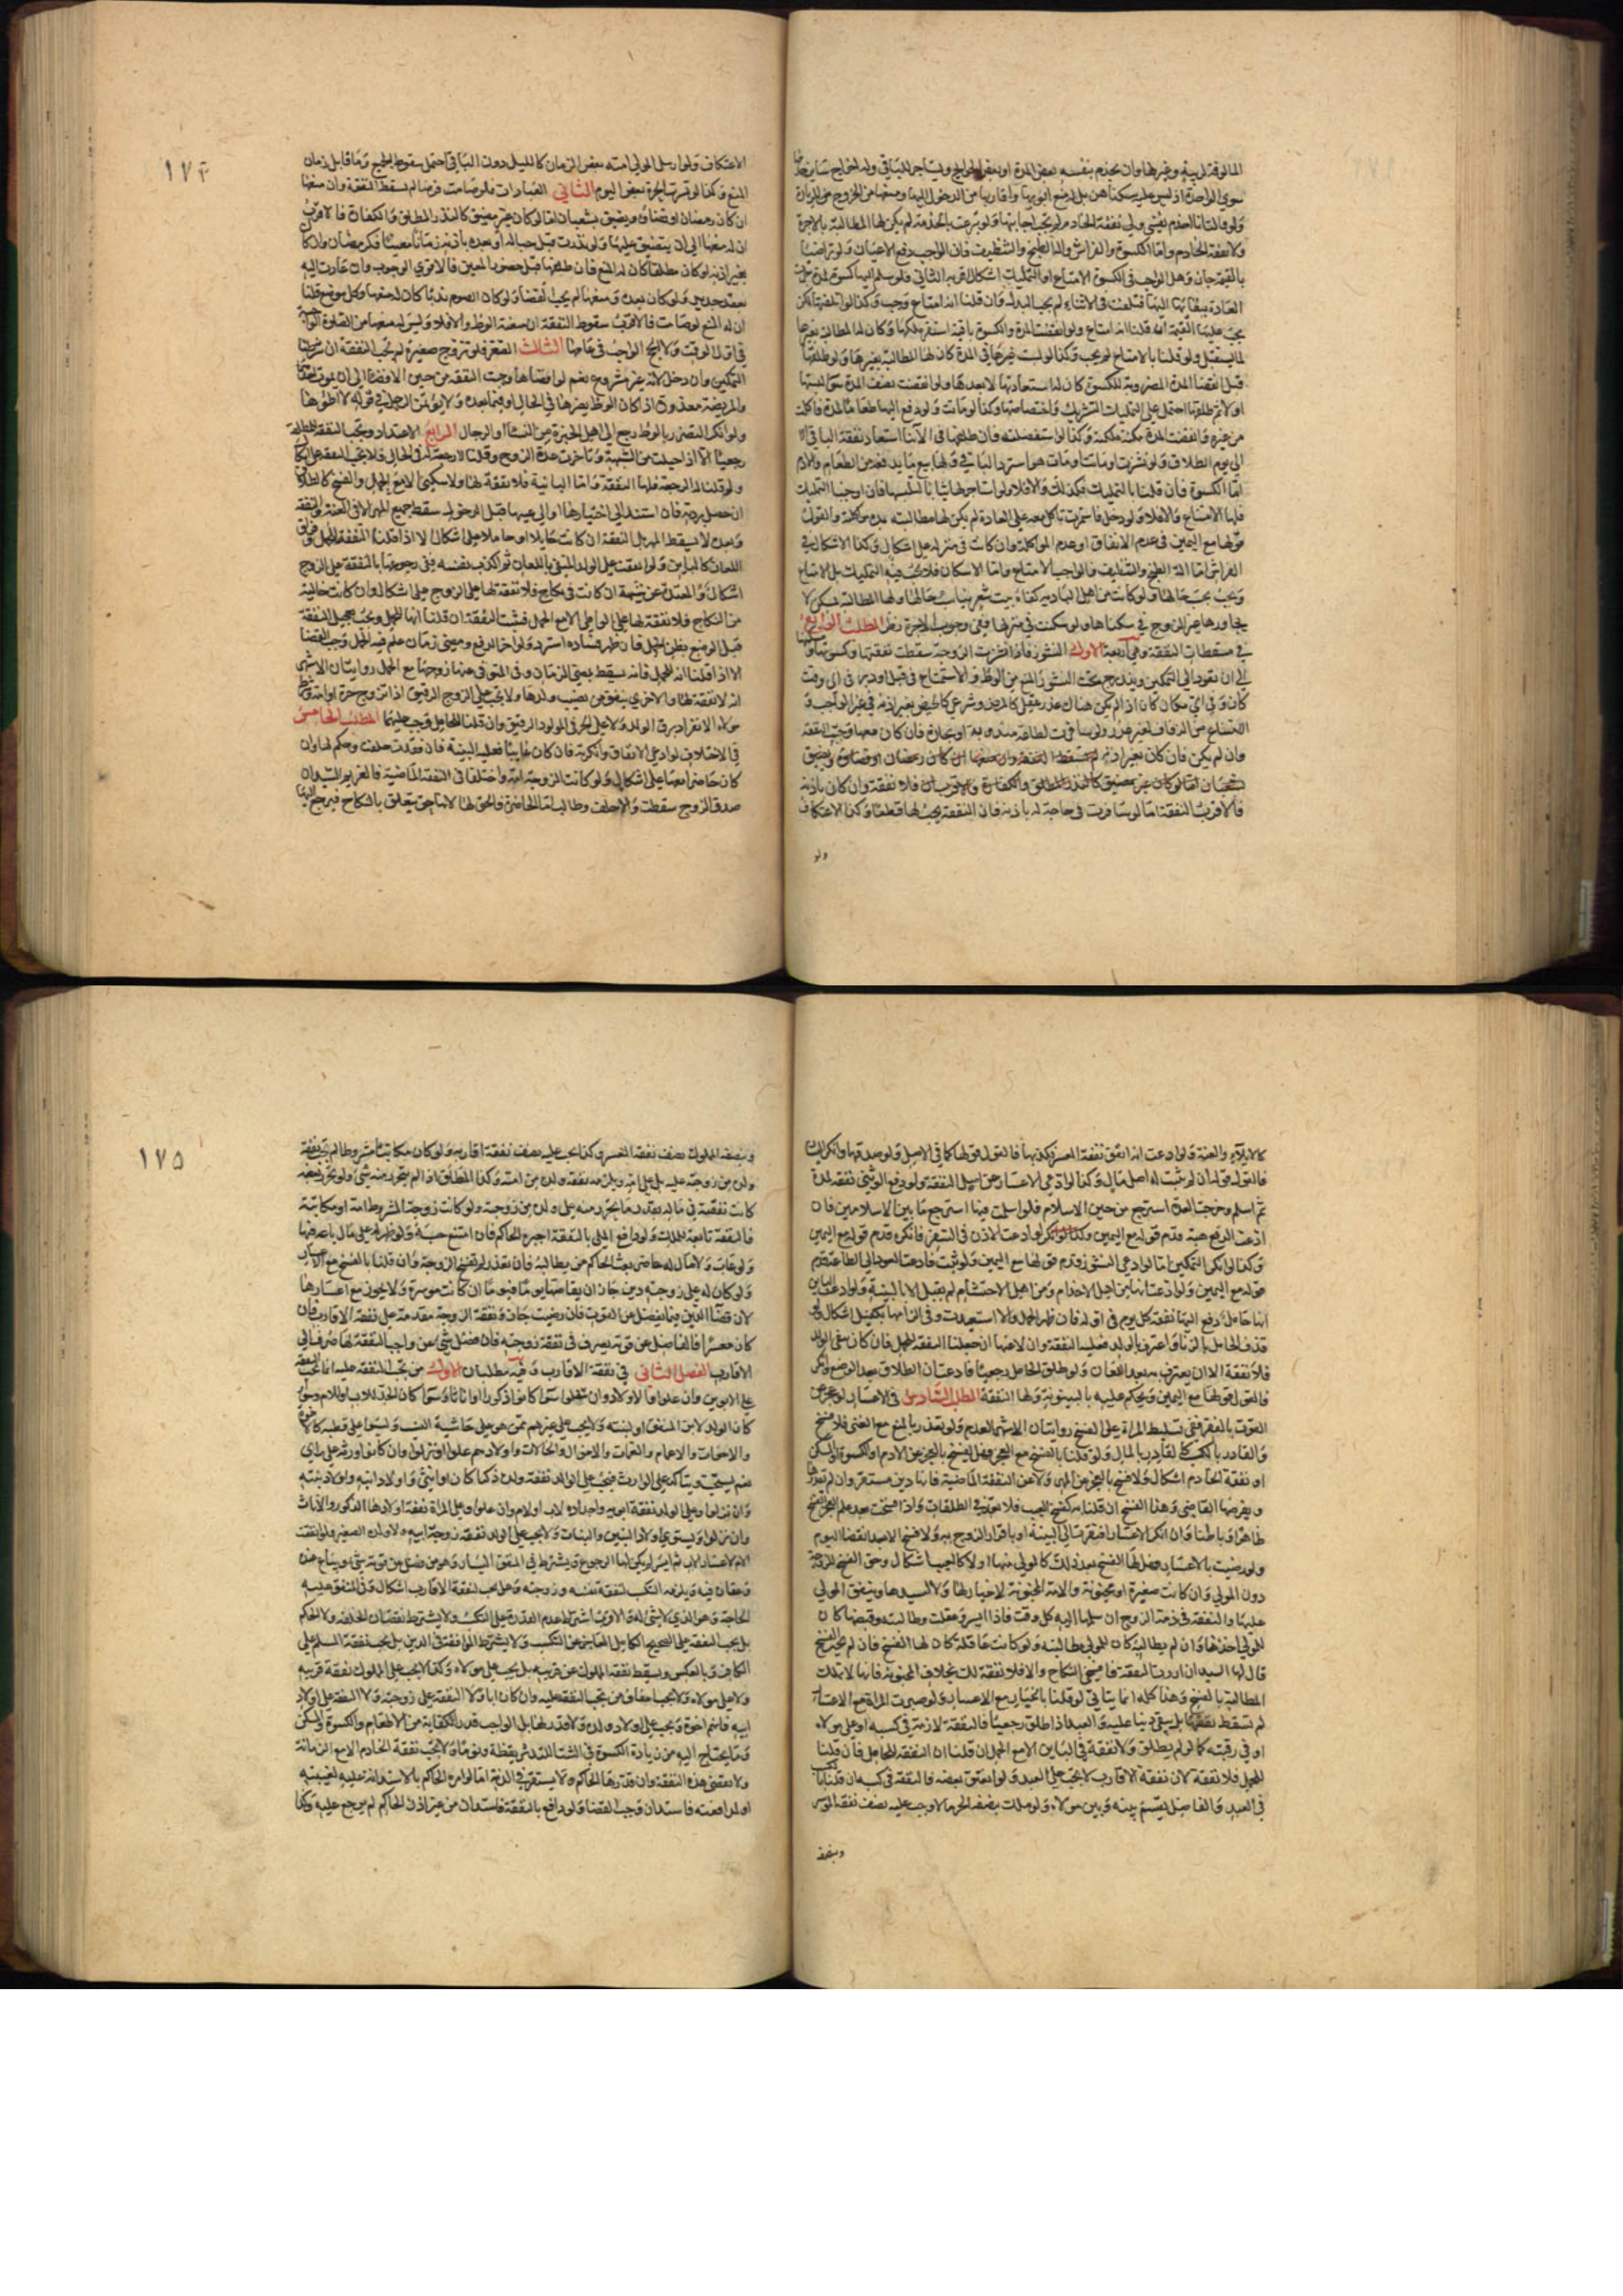 المألوفة لزينة وغيرها وان يخدم بنفسه بعض المدة او بعض الحوايج ويستاجر للباقي وله اخراج ساير
سوى الواحدة اذ ليس عليه سكناهن بل له منع ابويها واقاربها من الدخول اليها ومنعها من الخروج للزيارة
ولو قالت انا اخدم نفسي ولي نفقة الخادم لم يجب اجابتها ولو تبرعت بالخدمة لم يكن لها المطالبة بالاجرة
ولا نفقة الخادم واما الكسوة والفراش والة الطبخ والتنظيف فان الواجب دفع الاعيان ولو تراضيا
بالقيمة جاز وهل الواجب في الكسوة الامتاع او التمليك اشكال اقربه الثاني فلو سلم اليها كسوة لمدة جرت
العادة ببقائها اليها فتلفت في الاثناء لم يجب البدل وان قلنا انه امتاع وجب وكذا لو اتلفتها لكن
يجب عليها القيمة ان قلنا انه امتاع ولو انقضت المدة والكسوة باقية استقر ملكها وكان لها المطالبة بغيرها
لما يستقبل ولو قلنا بالامتاع لم يجب وكذا لو لبست غيرها في المدة كان لها المطالبة بغيرها ولو طلقها
قبل انقضاء المدة المضروبة للكسوة كان له استعادتها لا بعدها ولو انقضت نصف المدة سواء لبستها
او لا ثم طلقها احتمل على التمليك التشريك واختصاصها وكذا لو ماتت ولو دفع اليها طعاما لمدة فاكلت
من غيره وانقضت المدة مكنة ملكته وكذا لو استفضلته فان طلقها في الاثناء استعاد نفقة الباقي الا
الى يوم الطلاق ولو نشزت او ماتت او مات هو استرد الباقي ولها بيع ما يدفعه من الطعام والادم
اما الكسوة فان قلنا بالتمليك فكذلك والا فلا ولو استاجر لها ثيابا لتلبسها فان اوجبنا التمليك
فلها الامتناع والا فلا ولو دخل فاستمرت تاكل معه على العادة لم يكن لها مطالبته بمدة مواكلته والقول
قولها مع اليمين في عدم الانفاق او عدم المواكلة وان كانت في منزله على اشكال وكذا الاشكال في
الفراش اما الة الطبخ والتنظيف فالواجب الامتاع واما الاسكان فلا يجب فيه التمليك بل الامتاع
ويجب بحسب حالها ولو كانت من اهل البادية كفاه بيت شعر يناسب حالها ولها المطالبة بمسكن لا
يجاورها غير الزوج في سكناها ولو سكنت في منزلها ففي وجوب الاجرة نظر المطلب الرابع
في مسقطات النفقة وهي اربعة الاول النشوز فاذا نشزت الزوجة سقطت نفقتها وكسوتها
الى ان تعود الى التمكين ويندرج تحت النشوز المنع من الوطء والاستمتاع في قبل او دبر في اي وقت
كان وفي اي مكان كان اذا لم يكن هناك عذر عقلي كالمرض وشرعي كالحيض بغير اذنه في غير الواجب و
الامتناع من الزفاف لغير عذر ولو سافرت لطاعة مندوبة او تجارة فان كان معها وجبت النفقة
وان لم يكن فان كان بغير اذنه لم تسقط النفقة وان منعها ان كان رمضان او قضاؤه ويضيق
شعبان اما لو كان غير مضيق كالنذر المطلق والكفارة فالاقرب ان فلا نفقة وان كان باذنه
فالاقرب النفقة اما لو سافرت في حاجة له باذنه فان النفقة يجب لها قطعا وكذا الاعتكاف
ولو
١٧٤
الاعتكاف ولو ارسل المولى امته بعض الزمان كالليل دون الباقي احتمل سقوط الجميع وما قابل زمان
المنع وكذا لو قسرت الحرة بعض اليوم الثاني العبادات فلو صامت فرضا لم يسقط النفقة وان منعها
ان كان رمضان او قضاؤه ويضيق بشعبان اما لو كان غير مضيق كالنذر المطلق والكفارة فالاقرب
ان له منعها الى ان يتضيق عليها ولو نذرت قبل حباله او بعده باذنه زمانا معينا فكرمضان وان كان
بغير اذنه او كان مطلقا كان له المنع فان طلقها قبل حضور المعين فالاقوى الوجوب وان عادت اليه
بعقد جديد ولو كان بعده ومنعها لم يجب القضاء ولو كان الصوم ندبا كان له منعها وكل موضع قلنا
ان له المنع لو صامت فالاقرب سقوط النفقة ان منعته الوطء والا فلا وليس له منعها من الصلوة الواجبة
في اول الوقت ولا الحج الواجب في عامها الثالث الصغر فلو تزوج صغيرة لم يجب النفقة ان شرطنا
التمكين وان دخل لانه غير مشروع نعم لو افضاها وجبت النفقة من حين الافضاء الى ان يموت احدهما
والمريضة معذورة اذا كان الوطء يضرها في الحال او فيما بعده ولا يؤتمن الرجل في قوله لا اطؤها
ولو انكر التضرر بالوطء رجع الى اهل الخبرة من النساء او الرجال الرابع الاعتداد وتجب النفقة للمطلقة
رجعيا الا اذا حبلت من الشبهة وتاخرت عدة الزوج وقلنا لا رجعة له في الحال فلا تجب النفقة على اشكال
ولو قلنا له الرجعة فلها النفقة واما البائنة فلا نفقة لها ولا سكنى الا مع الحمل والفسخ كالطلاق
ان حصل بردته فان استند الى اختيارها او الى عيبها قبل الدخول سقط جميع المهر الا في العنة والنفقة
وبعده لا يسقط المهر بل النفقة ان كانت حايلا او حاملا على اشكال الا اذا قلنا النفقة للحمل وفراق
اللعان كالبائن ولو انفقت على الولد المنفي باللعان ثم اكذب نفسه ففي رجوعها بالنفقة على الزوج
اشكال والمعتدة عن شبهة ان كانت في نكاح فلا نفقة لها على الزوج على اشكال وان كانت خالية
من النكاح فلا نفقة لها على الواطي الا مع الحمل فتثبت النفقة ان قلنا انها للحمل ويجب تعجيل النفقة
قبل الوضع بظن الحمل فان ظهر فساده استرد ولو اخر الدفع ومضى زمان علم فيه الحمل وجب القضاء
الا اذا قلنا انه للحمل فانه يسقط بمضي الزمان وفي المتوفى عنها زوجها مع الحمل روايتان الاشهر
انه لا نفقة لها والاخرى ينفق من نصيب ولدها ولا يجب على الزوج الرقيق اذا تزوج حرة او امة وشرط
مولاه الانفراد برق الولد ولا على الحر في المولود الرقيق وان قلنا للحامل وجب عليهما المطلب الخامس
في الاختلاف لو ادعى الانفاق وانكرته فان كان غايبا فعليه البينة فان فقدت حلفت وحكم لها وان
كان حاضرا معها على اشكال ولو كانت الزوجة امة واختلفا في النفقة الماضية فالغريم السيد وان
صدق الزوج سقطت والا حلف وطالب اما الحاضرة فالحق لها لانها حق يتعلق بالنكاح فيرجع اليها
كالايلاء والعنة ولو ادعت انه انفق نفقة المعسر وكذبها فالقول قولها كما في الاصل ولو صدقها وانكر اليسار
فالقول قوله ان لم يثبت له اصل مال وكذا لو ادعى الاعسار عن اصل النفقة ولو دفع الوثني نفقة لمدة
ثم اسلم وخرجت العدة استرجع من حين الاسلام فلو اسلمت فيها استرجع ما بين الاسلامين فان
ادعت الدفع هبة قدم قوله مع اليمين وكذا لو ادعت الاذن في السفر فانكره قدم قوله مع اليمين
وكذا لو انكر التمكين اما لو ادعى النشوز قدم قولها مع اليمين ولو ثبت فادعت العود الى الطاعة قدم
قوله مع اليمين ولو ادعت انها من اهل الاخدام ومن اهل الاحتشام لم يقبل الا بالبينة ولو ادعت البائن
انها حامل دفع اليها نفقة كل يوم في اوله فان ظهر الحمل والا استعيدت وفي الزامها بكفيل اشكال ولو
قذف الحامل بالزنا واعترف بالولد فعليه النفقة وان لاعنها ان جعلنا النفقة للحمل فان كان بنفي الولد
فلا نفقة الا ان يعترف به بعد اللعان ولو طلق الحامل رجعيا فادعت ان الطلاق بعد الوضع وانكر
فالقول قولها مع اليمين ويحكم عليه بالبينونة ولها النفقة المطلب السادس في الاعسار لو عجز عن
القوت بالفقر ففي تسليط المراة على الفسخ روايتان الاشهر العدم ولو تعذر بالمنع مع الغنى فلا فسخ
والقادر بالكسب كالقادر بالمال ولو قلنا بالفسخ مع العجز فهل يفسخ بالعجز عن الادم او الكسوة او المسكن
او نفقة الخادم اشكال ولا فسخ بالعجز عن المهر ولا عن النفقة الماضية فانها دين مستقر وان لم تقدرها
ويفرضها القاضي وهذا الفسخ ان قلنا به كفسخ العيب فلا يعد في الطلقات واذا فسخت بعد علم العجز انفسخ
ظاهرا وباطنا وان انكر الاعسار افتقرت الى البينة او باقرار الزوج به ولا فسخ الا بعد انقضاء اليوم
ولو رضيت بالاعسار فهل لها الفسخ بعد ذلك كالمولى منها او لا كالعيب اشكال وحق الفسخ للزوجة
دون المولى وان كانت صغيرة او مجنونة والامة المجنونة لا خيار لها ولا لسيدها وينفق المولى
عليها والنفقة في ذمة الزوج ان سلمها اليه كل وقت فاذا ايسر وعقلت وطالبته وقبضها كان
للمولى اخذها وان لم يطالبه كان للمولى مطالبته ولو كانت عاقلة كان لها الفسخ فان لم تختر الفسخ
قال لها السيد ان اردت النفقة فافسخي النكاح والا فلا نفقة لك بخلاف المجنونة فانها لا تملك
المطالبة بالفسخ وهذا كله انما يتاتى لو قلنا بالخيار مع الاعسار ولو صبرت المراة مع الاعسار
لم تسقط نفقتها بل يبقى دينا عليه والعبد اذا طلق رجعيا فالنفقة لازمة في كسبه او على مولاه
او في رقبته كما لو لم يطلق ولا نفقة في البائن الا مع الحمل ان قلنا ان النفقة للحامل فان قلنا
للحمل فلا نفقة لان نفقة الاقارب لا تجب على العبد ولو انعتق بعضه فالنفقة في كسبه ان قلنا
في العبد والفاضل يقسم بينه وبين مولاه ولو ملك بنصفه الحر مالا وجب عليه نصف نفقة الموسر
وبنصفه
١٧٥
وبنصفه المملوك نصف نفقة المعسر وكذا يجب عليه نصف نفقة اقاربه ولو كان مكاتبا مشروطا لم تجب نفقة
ولده من زوجته عليه بل على امه ويلزمه نفقة ولده من امته وكذا المطلق اذا لم يتحرر منه شيء ولو تحرر بعضه
كانت نفقته في ماله بقدر ما تحرر منه على ولده من زوجته ولو كانت زوجة المشروط امة او مكاتبة
فالنفقة تابعة للملك ولو دافع الملي بالنفقة اجبره الحاكم فان امتنع حبسه ولو ظهر له على مال باعه فيها
ولو غاب ولا مال له حاضر بعث الحاكم من يطالبه فان تعذر لم تفسخ الزوجة وان قلنا بالفسخ مع الاعسار
ولو كان له على زوجته دين جاز ان يقاصها يوما فيوما ان كانت موسرة ولا يجوز مع اعسارها
لان قضاء الدين فيما يفضل من القوت فان رضيت جاز ونفقة الزوجة مقدمة على نفقة الاقارب فان
كان معسرا فالفاضل عن قوته يصرف في نفقة زوجته فان فضل شيء عن واجب النفقة لها صرف الى
الاقارب الفصل الثاني في نفقة الاقارب وفيه مطلبان الاول من تجب النفقة عليه انما تجب النفقة
على الابوين وان علوا والاولاد وان سفلوا سواء كانوا ذكورا او اناثا وسواء كان الجد للاب او للام وسواء
كان الولد لابن المنفق او لبنته ولا يجب على غيرهم ممن هو على حاشية النسب وليسوا على قطبه كالاخوة
والاخوات والاعمام والعمات والاخوال والخالات واولادهم علوا او نزلوا وان كانوا ورثة على راي
نعم يستحب ويتاكد على الوارث فيجب على الوالد نفقة ولده ذكرا كان او انثى واولاد ابنه واولاد بنته
وان نزلوا وعلى الولد نفقة ابويه واجداده لاب او لام وان علوا وعلى المراة نفقة اولادها الذكور والاناث
وان نزلوا ويستوي اولاد البنين والبنات ولا يجب على الولد نفقة زوجة ابيه ولا ولده الصغير ولو انفقت
الام لاعسار الاب ثم ايسر لم يكن لها الرجوع ويشترط في المنفق اليسار وهو من فضل عن قوته شيء ويباع عبده
وعقاره فيه ويلزمه التكسب لنفقة نفسه وزوجته وهل يجب لنفقة الاقارب اشكال وفي المنفق عليه
الحاجة وهو الذي لا شيء له والاقرب اشتراط عدم القدرة على التكسب ولا يشترط نقصان الخلقة ولا الحكم
بل يجب النفقة على الصحيح الكامل العاجز عن التكسب ولا يشترط الموافقة في الدين بل تجب نفقة المسلم على
الكافر وبالعكس ويسقط نفقة المملوك عن قريبه بل يجب على مولاه وكذا لا يجب على المملوك نفقة قريبه
ولا على مولاه ولا يجب اعفاف من تجب النفقة عليه وان كان ابا ولا النفقة على زوجته ولا النفقة على اولاد
ابيه فانهم اخوة ويجب على اولاد ولده ولا قدر لها بل الواجب قدر الكفاية من الاطعام والكسوة والمسكن
وما يحتاج اليه من زيادة الكسوة في الشتاء للتدثر يقظة ونوما ولا تجب نفقة الخادم الا مع الزمانة
ولا تقضى هذه النفقة وان قدرها الحاكم ولا يستقر في الذمة اما لو امره الحاكم بالاستدانة عليه لغيبته
او لمدافعته فاستدان وجب القضاء ولو دافع بالنفقة فاستدان من غير اذن الحاكم لم يرجع عليه وكذا